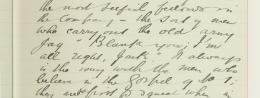 the most selfish fellows in
the Company — the sort of men
who carry out the old army
say "Blank you, I'm
all right, Jack". It always
is the way with the men who
believe in the Gospel of
they are first to squeal when